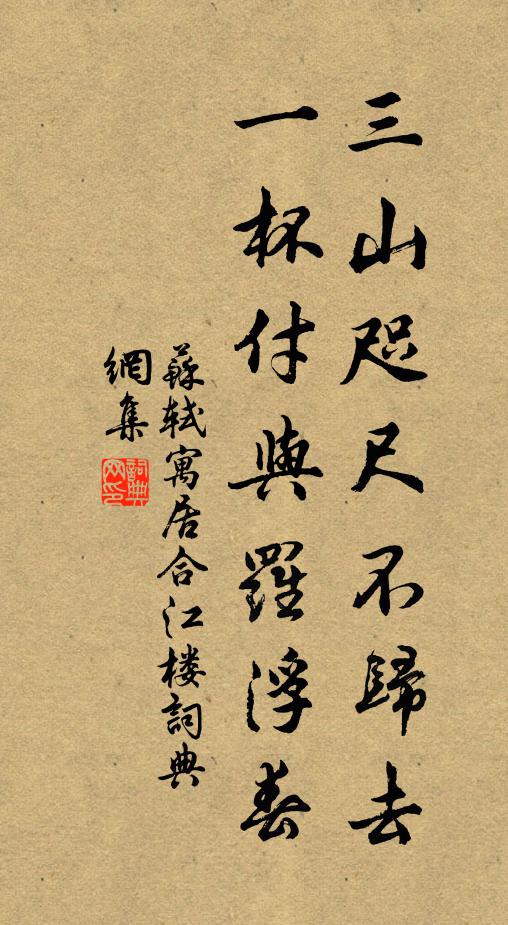 三山咫尺不歸去
一杯付與羅浮春
蘇軾寓居合江楼詞典
網集
詞典
网印